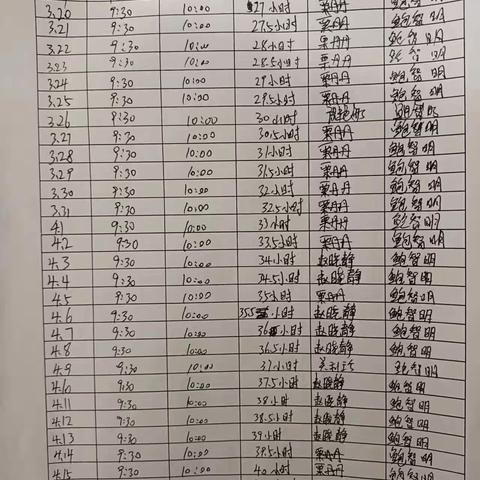 3.20 9:30 10:00 27小时 栗丹丹 鲍智明
3.21 9:30 10:00 27.5小时 栗丹丹 鲍智明
3.22 9:30 10:00 28小时 栗丹丹 鲍智明
3.23 9:30 10:00 28.5小时 栗丹丹 鲍智明
3.24 9:30 10:00 29小时 栗丹丹 鲍智明
3.25 9:30 10:00 29.5小时 栗丹丹 鲍智明
3.26 9:30 10:00 30小时 鲍智明
3.27 9:30 10:00 30.5小时 栗丹丹 鲍智明
3.28 9:30 10:00 31小时 栗丹丹 鲍智明
3.29 9:30 10:00 31.5小时 栗丹丹 鲍智明
3.30 9:30 10:00 32小时 栗丹丹 鲍智明
3.31 9:30 10:00 32.5小时 栗丹丹 鲍智明
4.1 9:30 10:00 33小时 栗丹丹 鲍智明
4.2 9:30 10:00 33.5小时 栗丹丹 鲍智明
4.3 9:30 10:00 34小时 赵晓静 鲍智明
4.4 9:30 10:00 34.5小时 赵晓静 鲍智明
4.5 9:30 10:00 35小时 栗丹丹 鲍智明
4.6 9:30 10:00 35.5小时 赵晓静 鲍智明
4.7 9:30 10:00 36小时 赵晓静 鲍智明
4.8 9:30 10:00 36.5小时 赵晓静 鲍智明
4.9 9:30 10:00 37小时 鲍智明
4.10 9:30 10:00 37.5小时 赵晓静 鲍智明
4.11 9:30 10:00 38小时 赵晓静 鲍智明
4.12 9:30 10:00 38.5小时 赵晓静 鲍智明
4.13 9:30 10:00 39小时 赵晓静 鲍智明
4.14 9:30 10:00 39.5小时 栗丹丹 鲍智明
4.15 9:30 10:00 40小时 栗丹丹 鲍智明